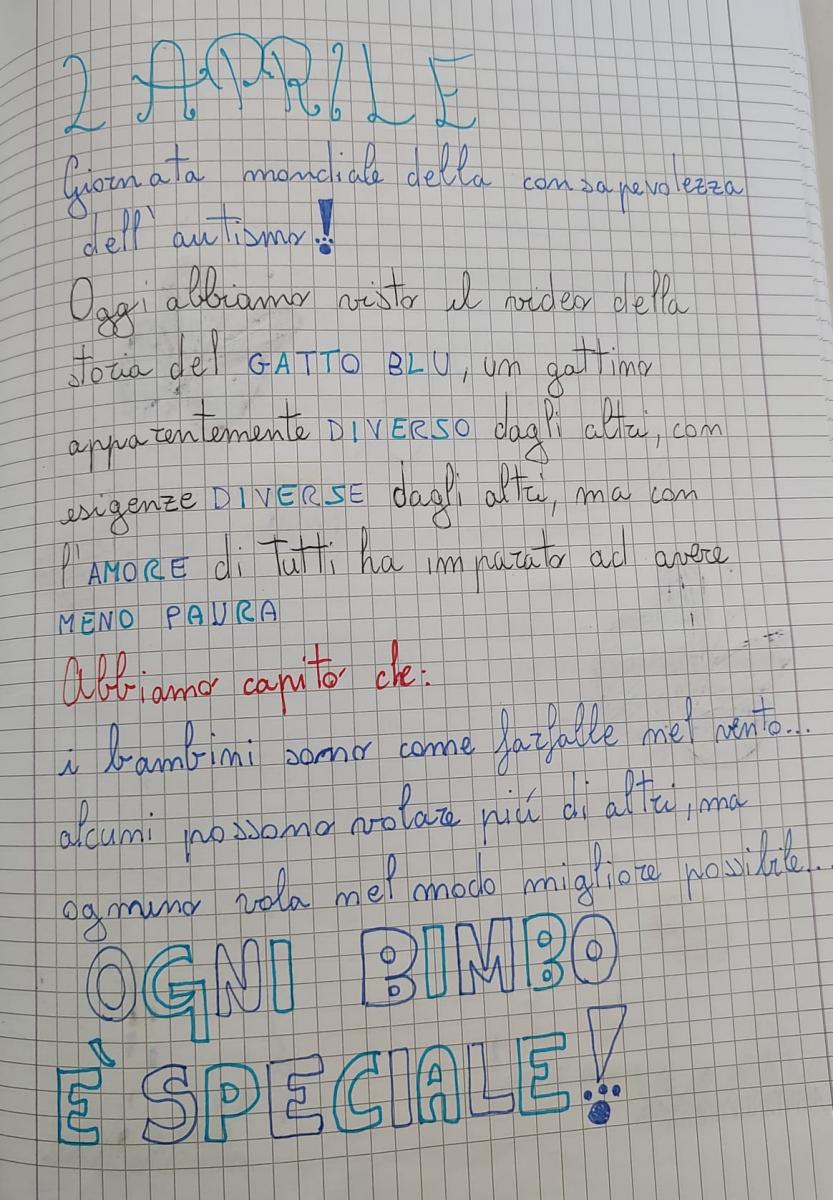 2 APRILE
Giornata mondiale della consapevolezza
dell'autismo!
Oggi abbiamo visto il video della
storia del GATTO BLU, un gattino
apparentemente DIVERSO dagli altri, con
esigenze DIVERSE dagli altri, ma con
l'AMORE di Tutti ha imparato ad avere
MENO PAURA
Abbiamo capito che:
i bambini sono come farfalle nel vento...
alcuni possono volare più di altri, ma
ognuno vola nel modo migliore possibile...
OGNI BIMBO
È SPECIALE!